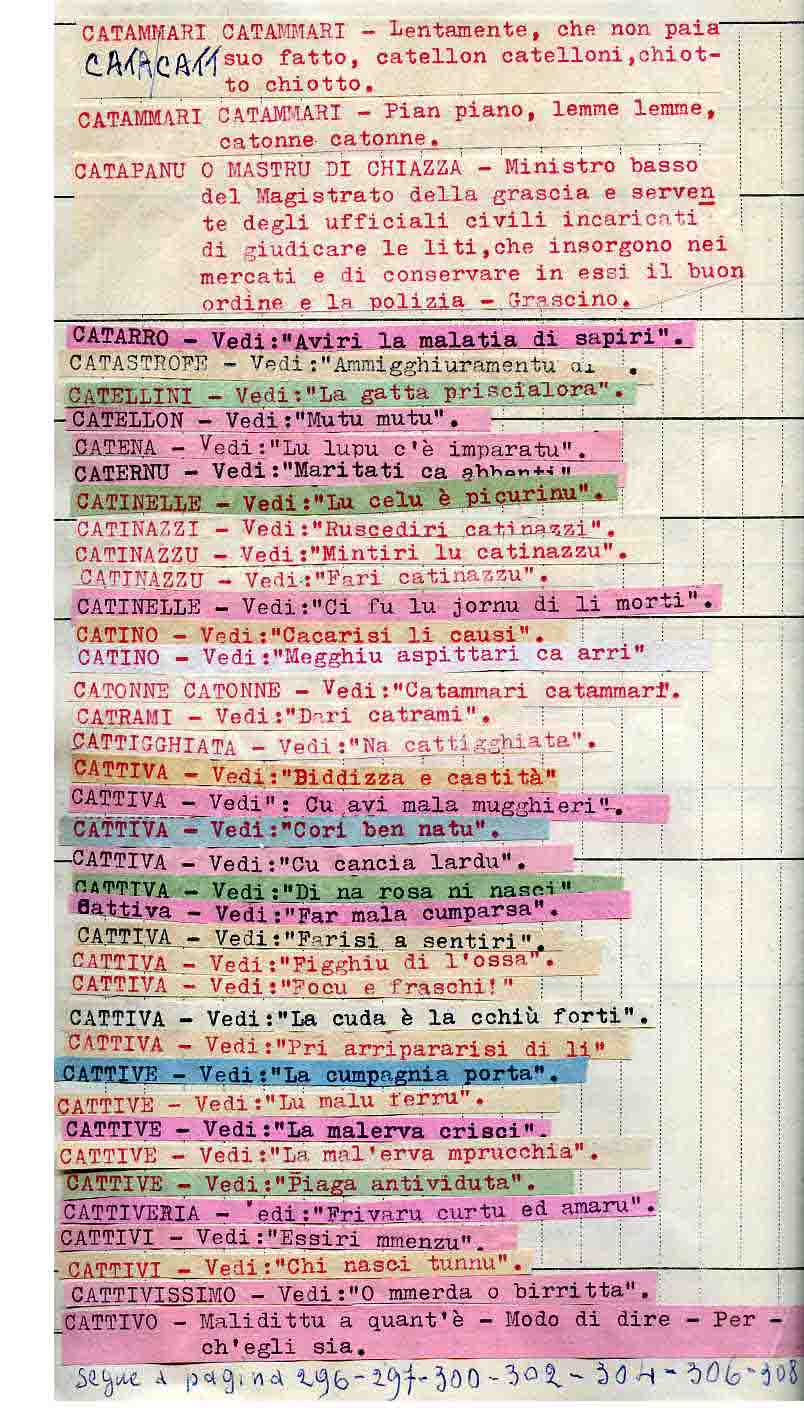 CATAMMARI CATAMMARI - Lentamente, che non paia
CATACATT suo fatto, catellon catelloni,chiot-
to chiotto.
CATAMMARI CATAMMARI - Pian piano, lemme lemme,
catonne catonne.
CATAPANU O MASTRU DI CHIAZZA - Ministro basso
del Magistrato della grascia e serven
te degli ufficiali civili incaricati
di giudicare le liti,che insorgono nei
mercati e di conservare in essi il buon
ordine e la polizia - Grascino.
CATARRO - Vedi:"Aviri la malatia di sapiri".
CATASTROFE - Vedi:"Ammigghiuramentu di .
CATELLINI - Vedi:"La gatta priscialora".
CATELLON - Vedi:"Mutu mutu".
CATENA - Vedi:"Lu lupu c'è imparatu".
CATERNU - Vedi:"Maritati ca abbenti"
CATINELLE - Vedi:"Lu celu è picurinu".
CATINAZZI - Vedi:"Ruscediri catinazzi".
CATINAZZU - Vedi:"Mintiri lu catinazzu".
CATINAZZU - Vedi:"Fari catinazzu".
CATINELLE - Vedi:"Ci fu lu jornu di li morti".
CATINO - Vedi:"Cacarisi li causi".
CATINO - Vedi:"Megghiu aspittari ca arri"
CATONNE CATONNE - Vedi:"Catammari catammari".
CATRAMI - Vedi:"Dari catrami".
CATTIGGHIATA - Vedi:"Na cattigghiata".
CATTIVA - Vedi:"Biddizza e castità"
CATTIVA - Vedi": Cu avi mala mugghieri".
CATTIVA - Vedi:"Cori ben natu".
CATTIVA - Vedi:"Cu cancia lardu".
CATTIVA - Vedi:"Di na rosa ni nasci".
Cattiva - Vedi:"Far mala cumparsa".
CATTIVA - Vedi:"Farisi a sentiri".
CATTIVA - Vedi:"Figghiu di l'ossa".
CATTIVA - Vedi:"Focu e fraschi!"
CATTIVA - Vedi:"La cuda è la cchiù forti".
CATTIVA - Vedi:"Pri arripararisi di li"
CATTIVE - Vedi:"La cumpagnia porta".
CATTIVE - Vedi:"Lu malu ferru".
CATTIVE - Vedi:"La malerva crisci".
CATTIVE - Vedi:"La mal'erva mprucchia".
CATTIVE - Vedi:"Piaga antividuta".
CATTIVERIA - 'edi:"Frivaru curtu ed amaru".
CATTIVI - Vedi:"Essiri mmenzu".
CATTIVI - Vedi:"Chi nasci tunnu".
CATTIVISSIMO - Vedi:"O mmerda o birritta".
CATTIVO - Malidittu a quant'è - Modo di dire - Per -
ch'egli sia.
Segue a pagina 296-297-300-302-304-306-308